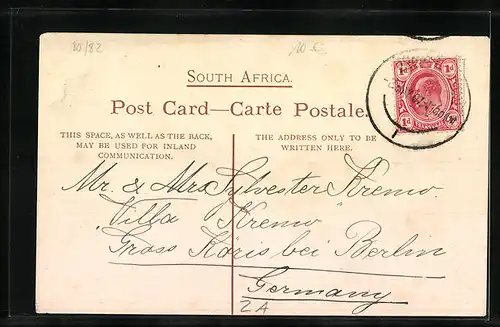 10/82
10 €
SOUTH AFRICA.
1d 1d
1d
Post Card—Carte Postale.
THIS SPACE, AS WELL AS THE BACK,
MAY BE USED FOR INLAND
COMMUNICATION.
THE ADDRESS ONLY TO BE
WRITTEN HERE.
Mr. & Mrs Sylvester Kremo.
Villa Kremo
Gross Köris bei Berlin
Germany
2A